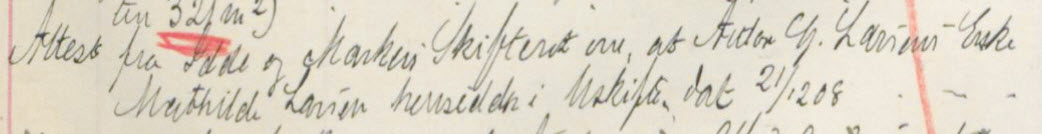 ten 321 m2)
Attest fra Idde og Markers Skifteret om, at Anton G. Larsens Enke
Mathilde Larsen hensidder i Uskifte, dat 21/1208 - - -